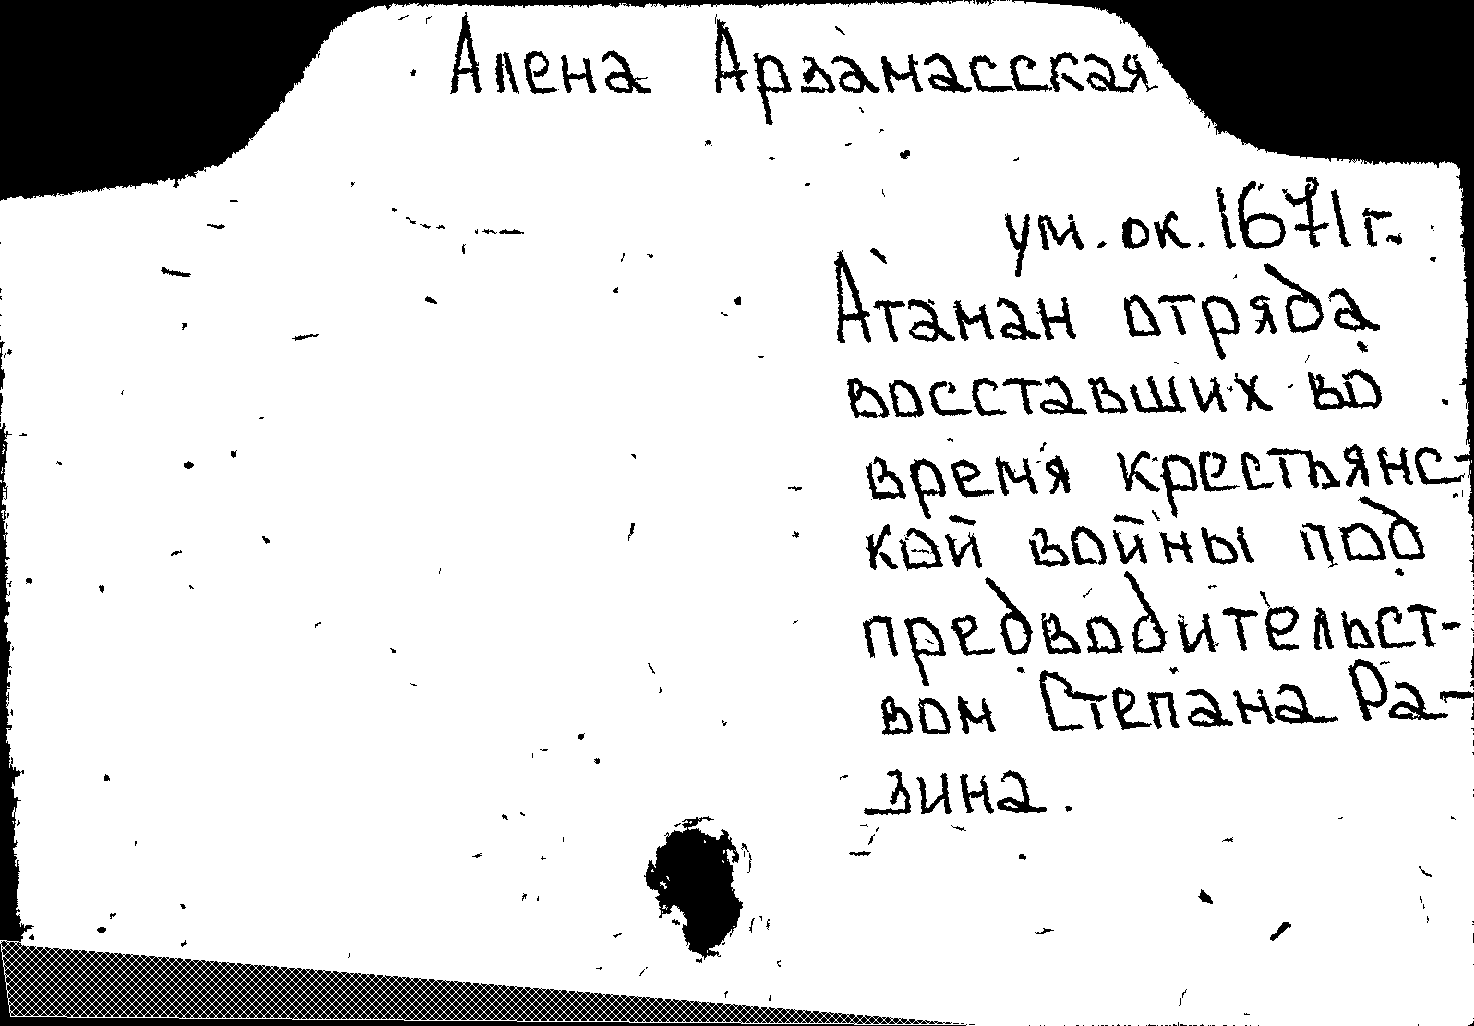 Алена Арзамасская
ум. ок. 1671 г.
Атаман отряда
восставших во
время крестьянс-
кой войны под
предводительст-
вом Степана Ра-
зина.